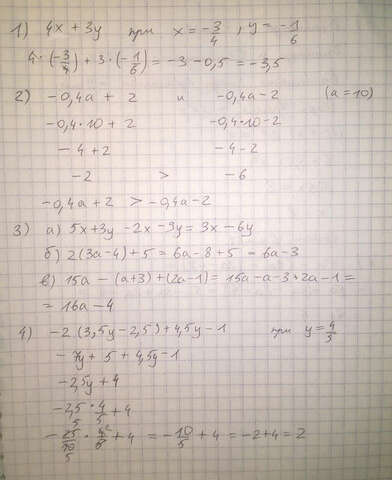 1) 4x + 3y при x = -3/4, y = -1/6
4·(-3/4) + 3·(-1/6) = -3 - 0,5 = -3,5
2) -0,4a + 2 и -0,4a - 2 (a = 10)
-0,4·10 + 2 -0,4·10 - 2
-4 + 2 -4 - 2
-2 > -6
-0,4a + 2 > -0,4a - 2
3) а) 5x + 3y - 2x - 9y = 3x - 6y
б) 2(3a - 4) + 5 = 6a - 8 + 5 = 6a - 3
в) 15a - (a + 3) + (2a - 1) = 15a - a - 3 + 2a - 1 =
= 16a - 4
4) -2·(3,5y - 2,5) + 4,5y - 1 при y = 4/5
-7y + 5 + 4,5y - 1
-2,5y + 4
-2,5·4/5 + 4
= -10/5 + 4 = -2 + 4 = 2